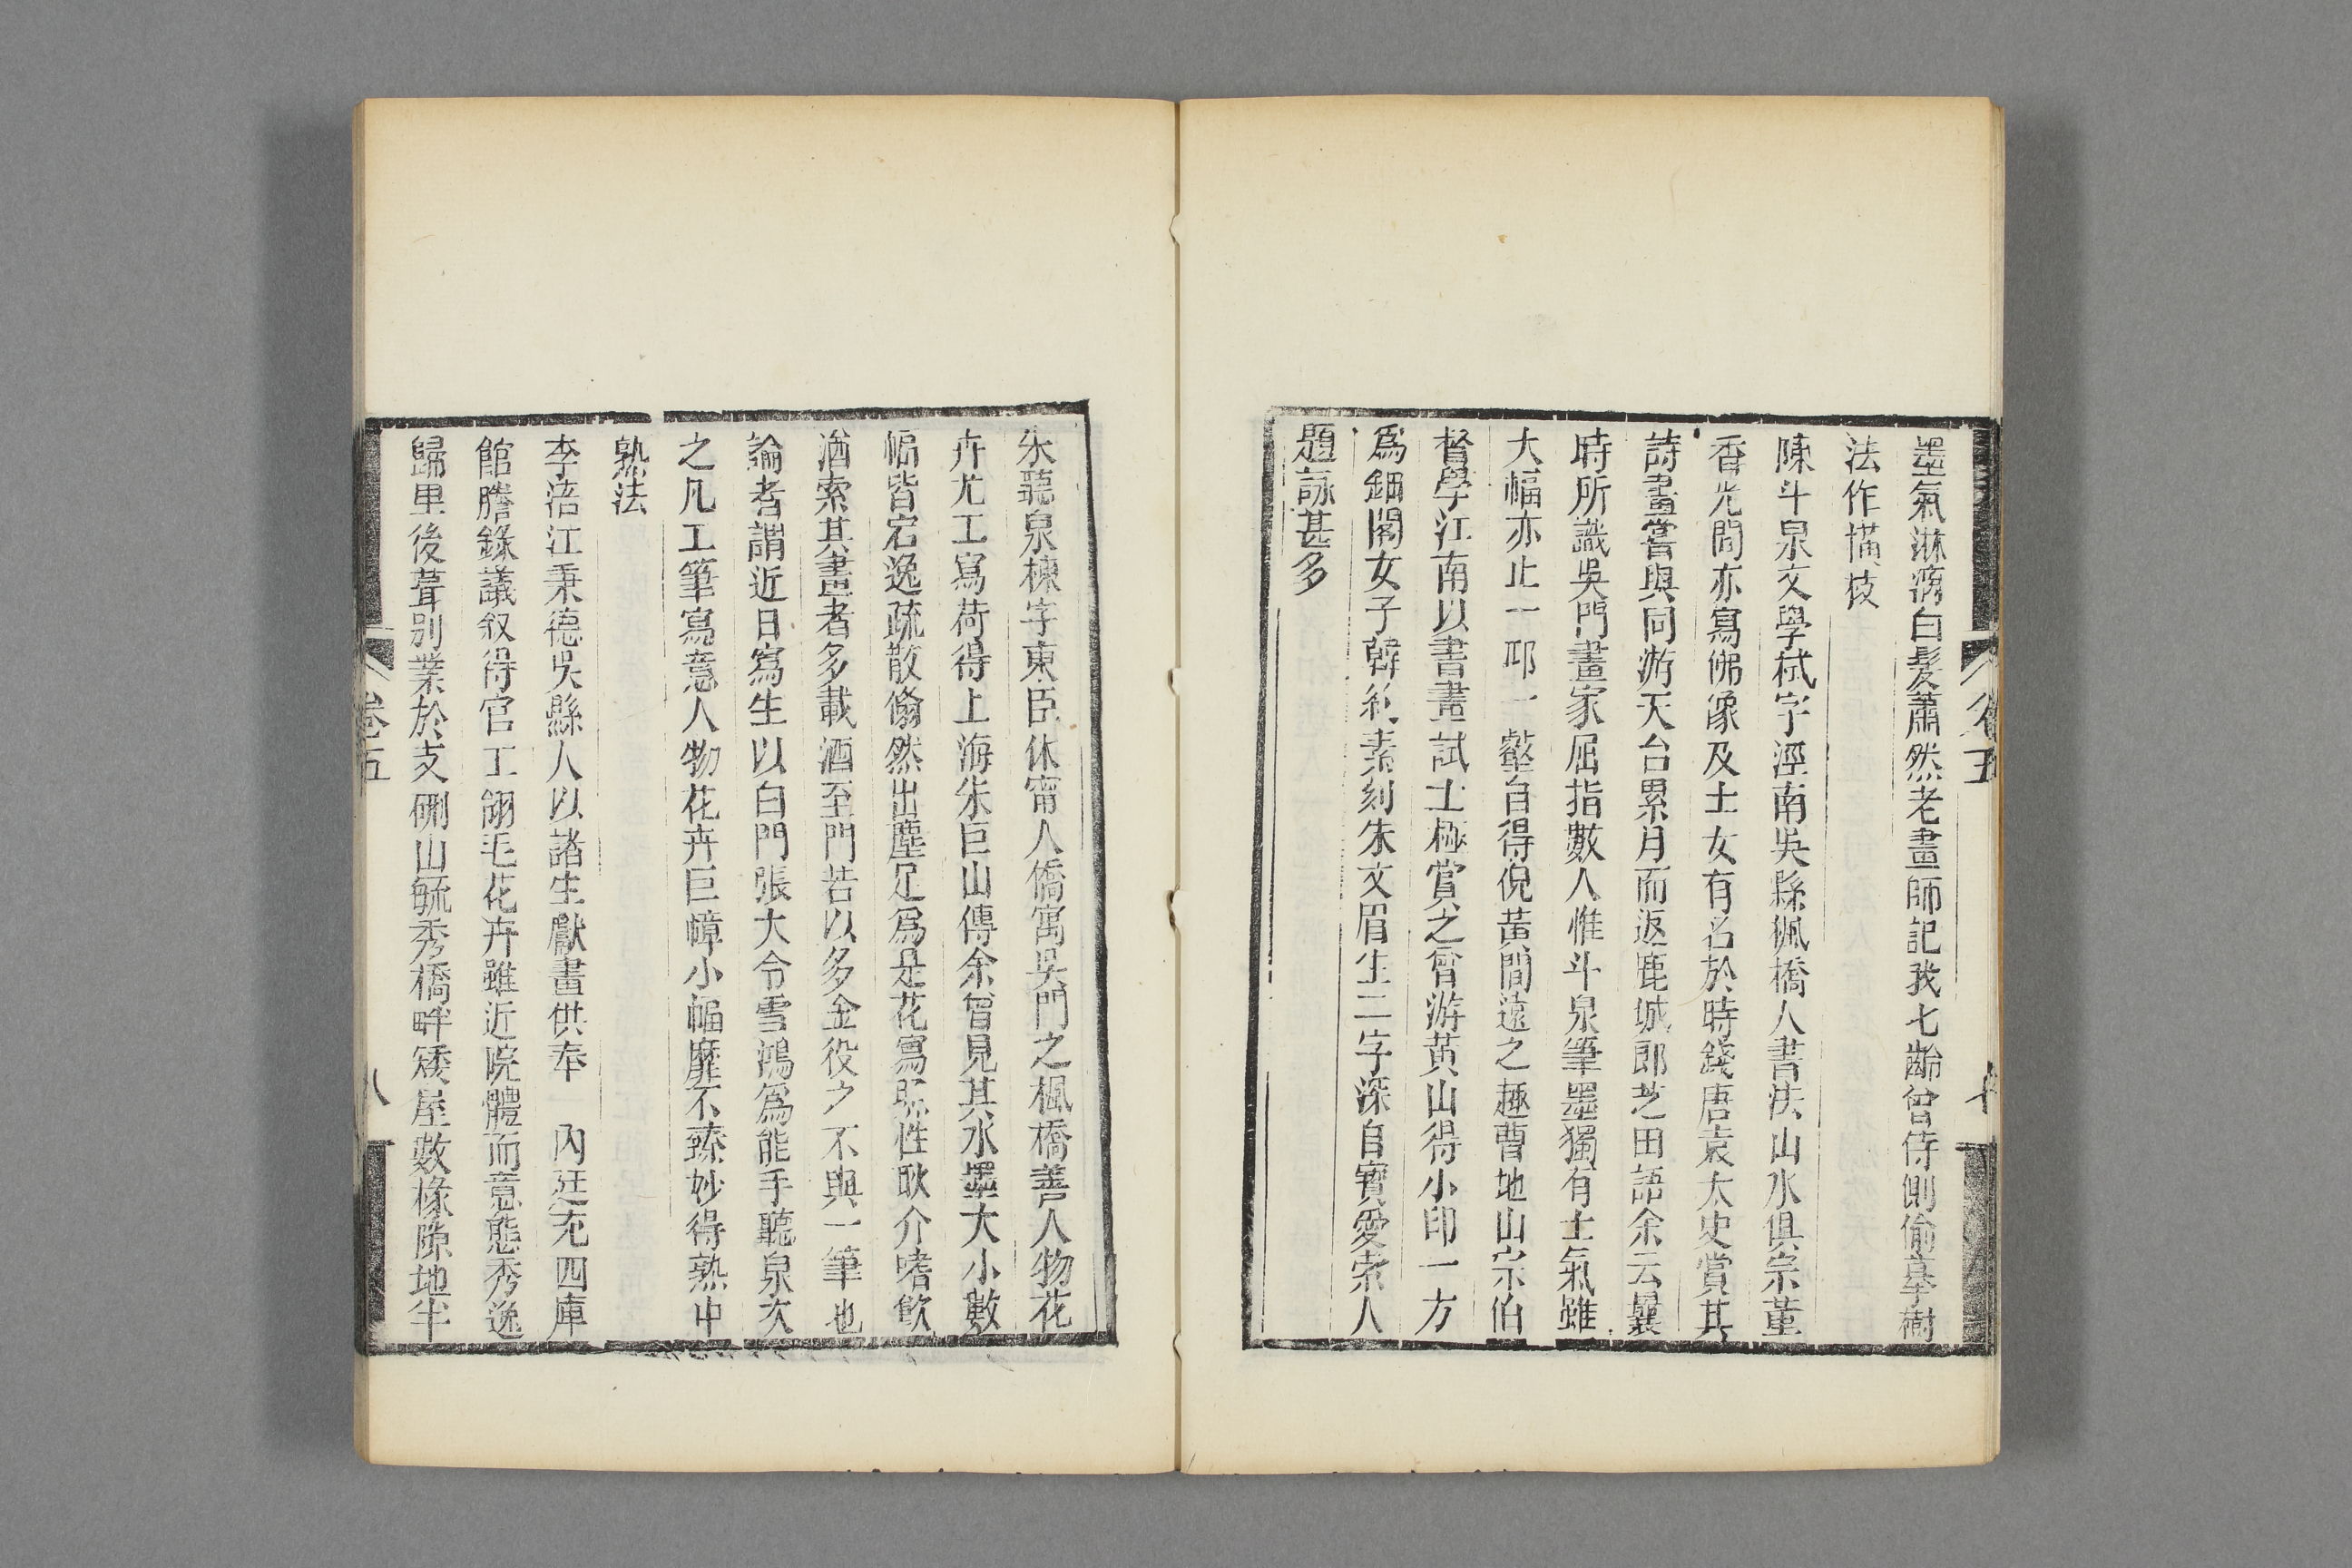 墨氣淋漓白髮蕭然老畫師記我七齡曾侍側偷摹樹
法作描枝
陳斗泉文學栻字涇南吳縣楓橋人書法山水俱宗董
香光間亦寫佛像及士女有名於時錢唐袁太史賞其
詩畫嘗與同游天台累月而返鹿城郎芝田語余云曩
時所識吳門畫家屈指數人惟斗泉筆墨獨有士氣雖
大幅亦止一邱一壑自得倪黃間遠之趣曹地山宗伯
督學江南以書畫試士極賞之嘗游黃山得小印一方
爲鈿閣女子韓約素刻朱文眉生二字深自寶愛索人
題詠甚多
朱聽泉棟字東臣休甯人僑寓吳門之楓橋善人物花
卉尤工寫荷得上海朱巨山傳余曾見其水墨大小數
幅皆宕逸疏散翛然出塵足爲是花寫照性耿介嗜飲
酒索其畫者多載酒至門若以多金役之不與一筆也
論者謂近日寫生以白門張大令雪鴻爲能手聽泉次
之凡工筆寫意人物花卉巨幛小幅靡不臻妙得熟中
熟法
李涪江秉德吳縣人以諸生獻畫供奉 內廷充四庫
館謄錄議叙得官工翎毛花卉雖近院體而意態秀逸
歸里後葺別業於支硎山毓秀橋畔矮屋數椽隙地半
卷五
八